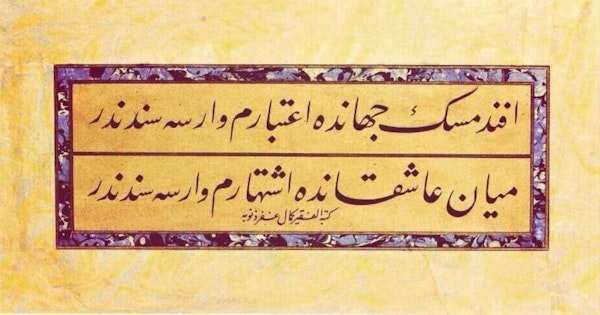 افندمسڭ جهانده اعتبارم وارسه سندندر
میان عاشقانده اشتهارم وارسه سندندر
كتبه الفقیر كمال غفر ذنوبه